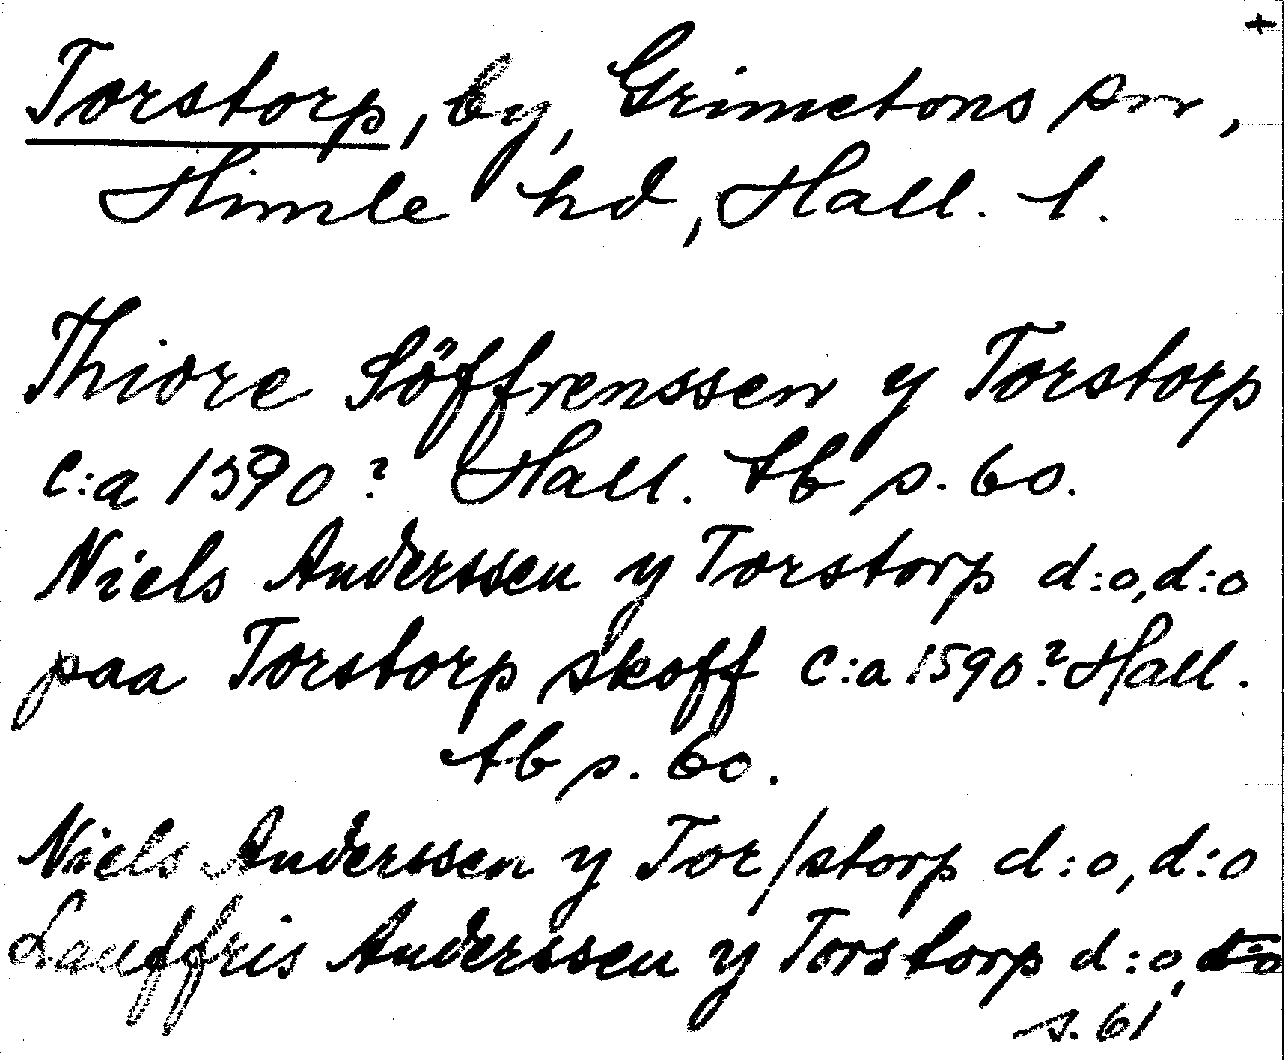 +
Torstorp, by, Grimetons sn,
Himle hd, Hall. l.
Thiore Söffrenssen y Torstorp
c:a 1590? Hall. tb s. 60.
Niels Anderssen y Torstorp d:o, d:o
paa Torstorp skoff c:a 1590? Hall.
tb s. 60.
Niels Anderssen y Tor/storp d:o, d:o
Lauffris Anderssen y Torstorp d:o,
s. 61